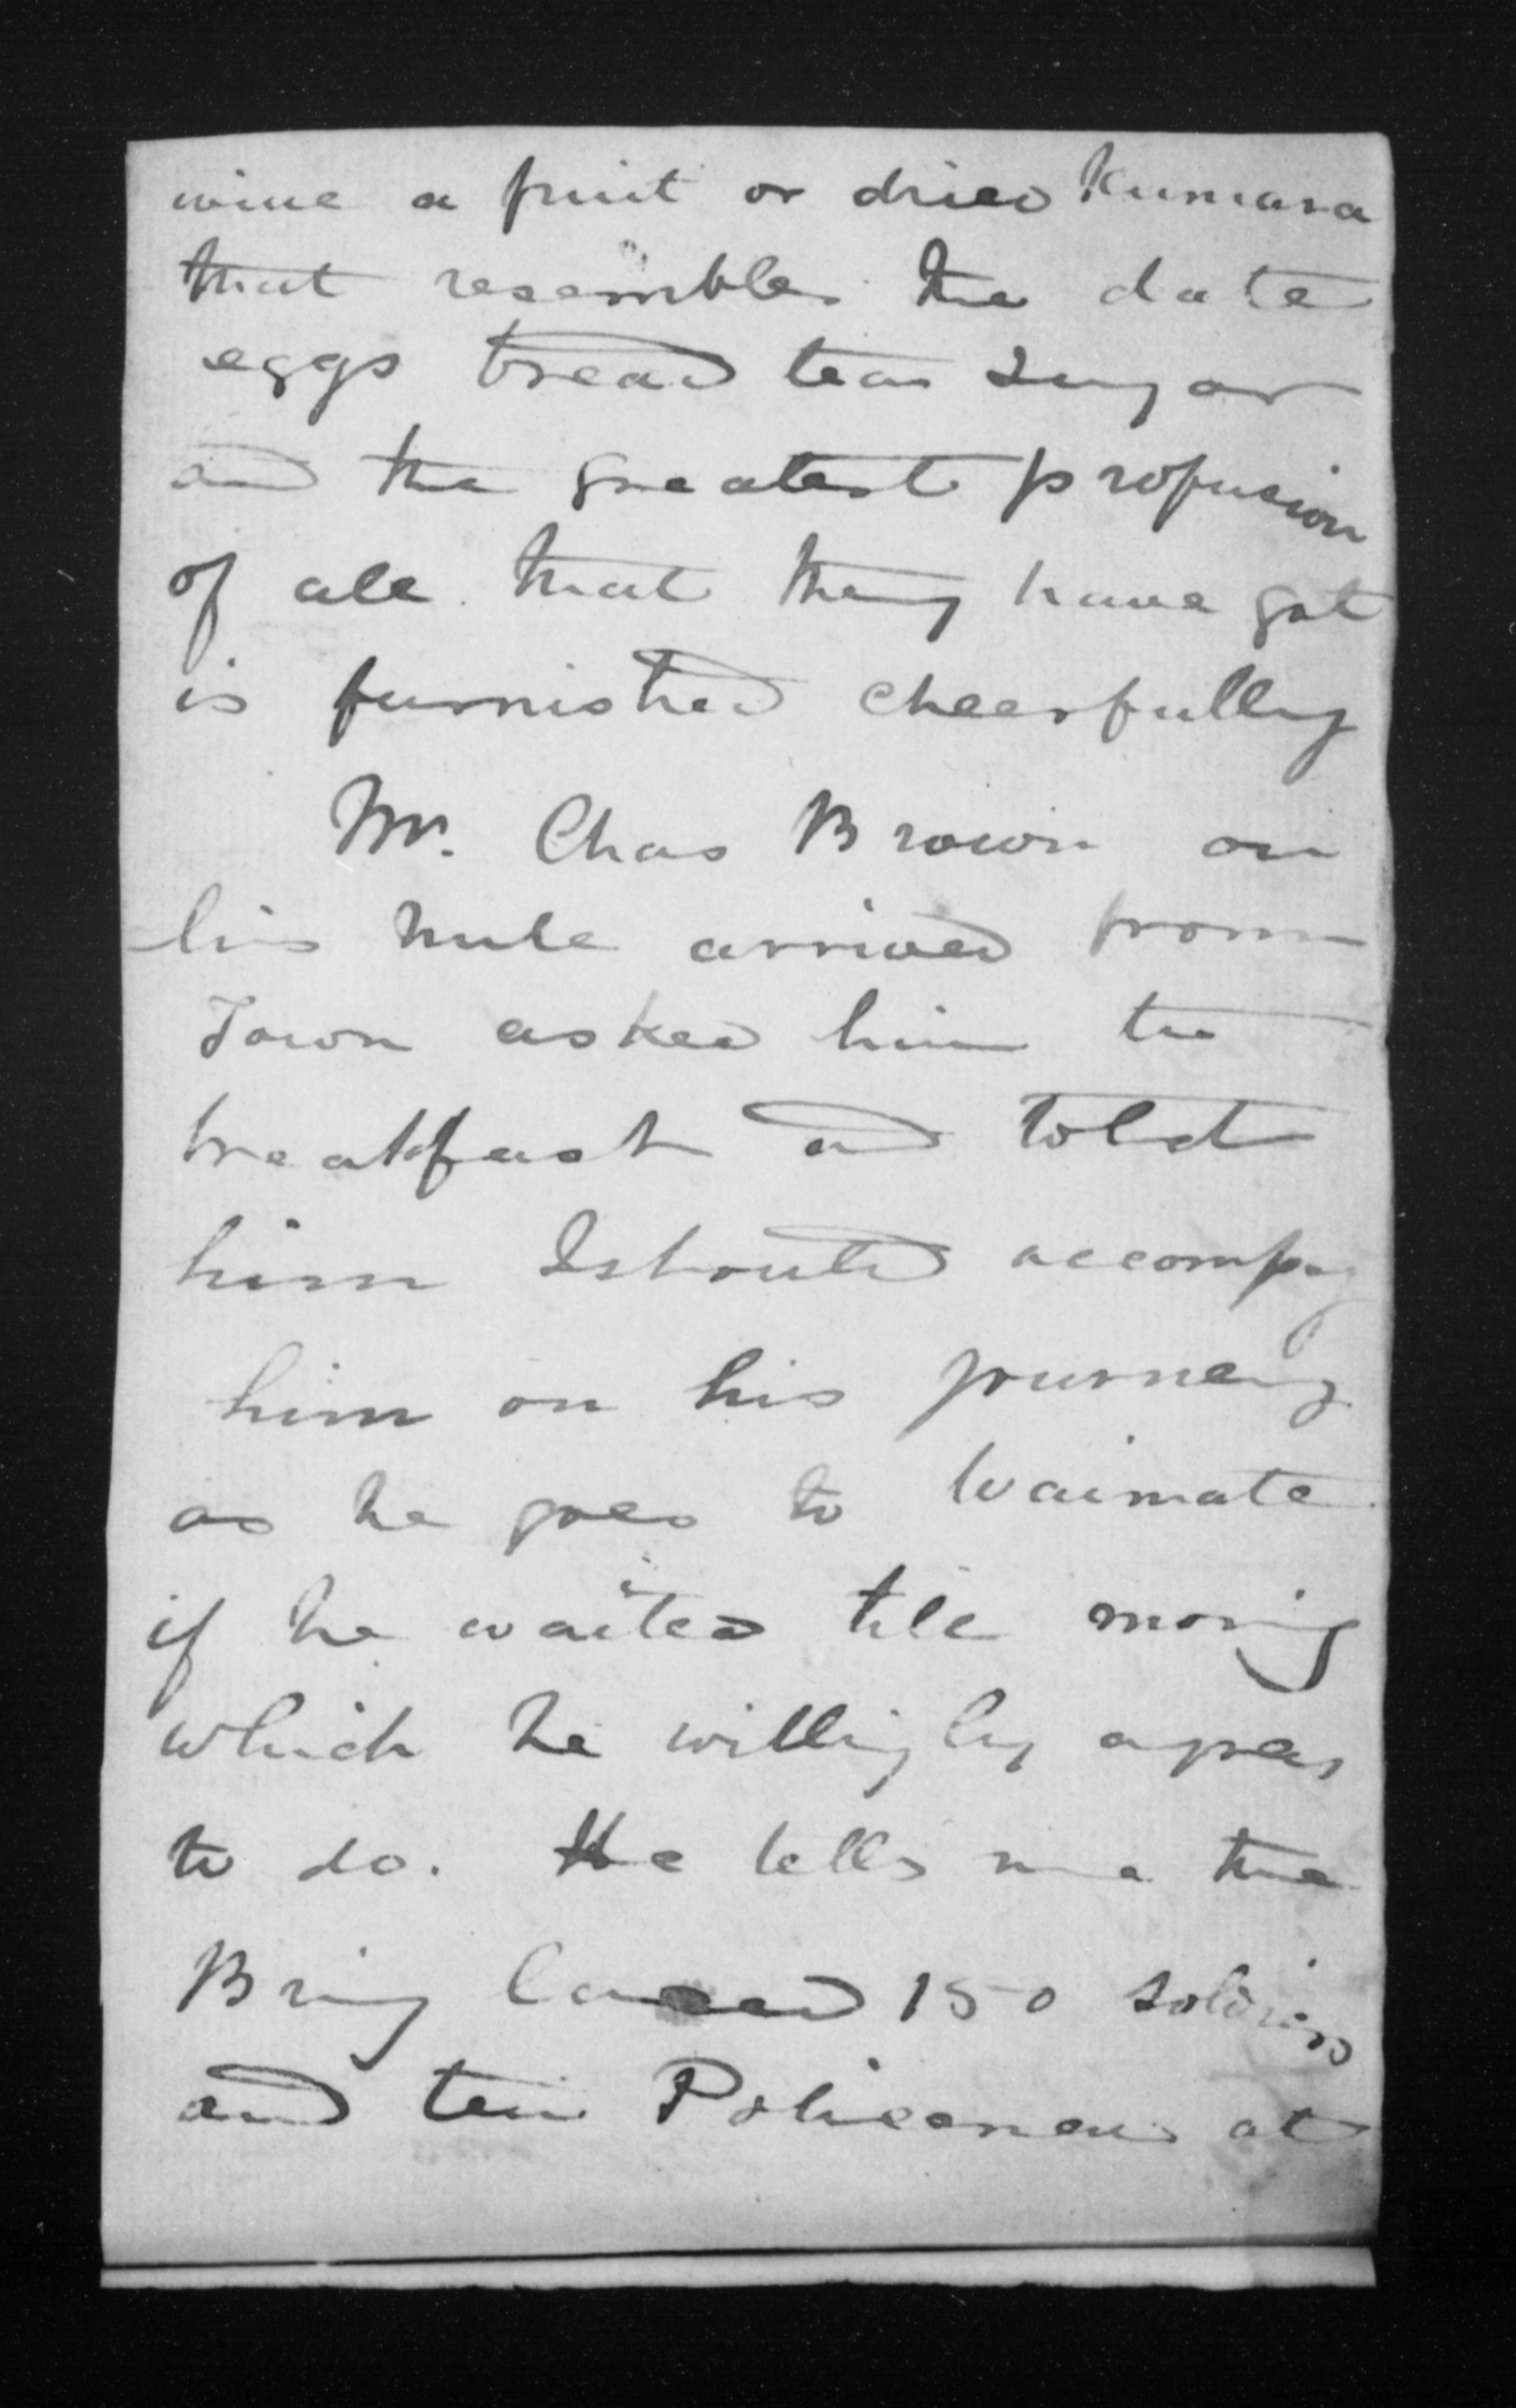 wine a fruit or dried Kumara
that resembles the date
eggs bread tea sugar
and the greatest profusion
of all that they have got
is furnished cheerfully
Mr. Chas Brown on
his mule arrived from
Town asked him to
breakfast and told
him I should accompy
him on his journey
as he goes to Waimate
if he waited till morning
which he willingly agrees
to do. He tells me the
Brig landed 150 soldiers
and ten Policemen at